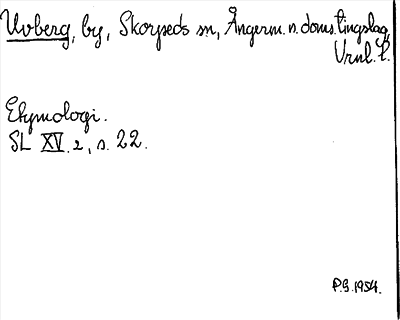 Uvberg, by, Skorpeds sn, Ångerm. n. doms. tingslag,
Vrnl. l.
Etymologi.
SL XV. 2, s. 22.
P.G. 1954.